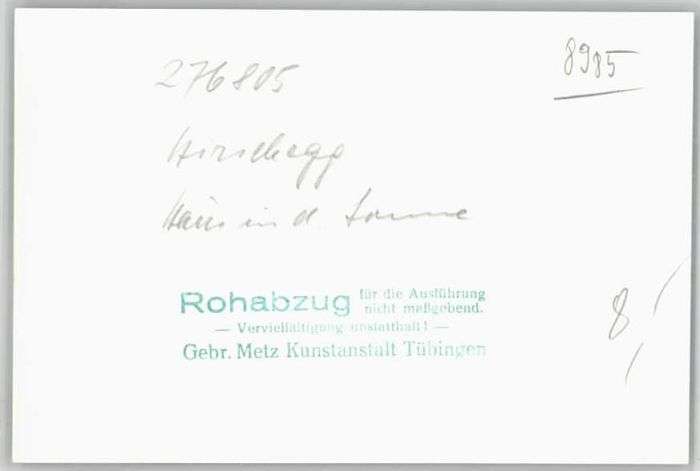 8985
276805
Hirschegg
Haus in d. Sonne
Rohabzug für die Ausführung nicht maßgebend.
— Vervielfältigung unstatthaft! —
Gebr. Metz Kunstanstalt Tübingen
8,